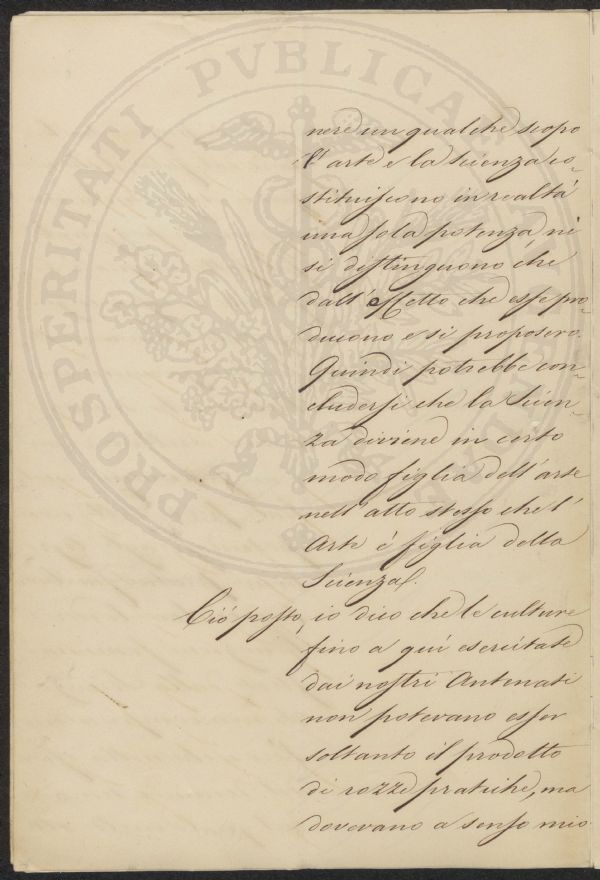 nere un qualche scopo
l'arte e la scienza co-
stituiscono in realtà
una sola potenza, ni
si distinguono che
dall'effetto che esse pro-
ducono, e si proposero.
Quindi potrebbe con-
cludersi che la Scien-
za diviene in certo
modo figlia dell'arte
nell'atto stesso che l'
Arte é figlia della
Scienza.
Ció posto, io dico che le culture
fino a quí esercitate
dai nostri Antenati
non potevano esser
soltanto il prodotto
di rozze pratiche, ma
dovevano a senso mio
PROSPERITATI PVBLICAE